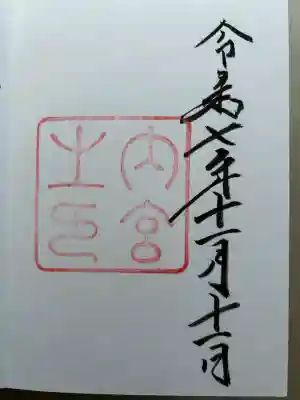 令和七年十一月十一日
内宮
之印